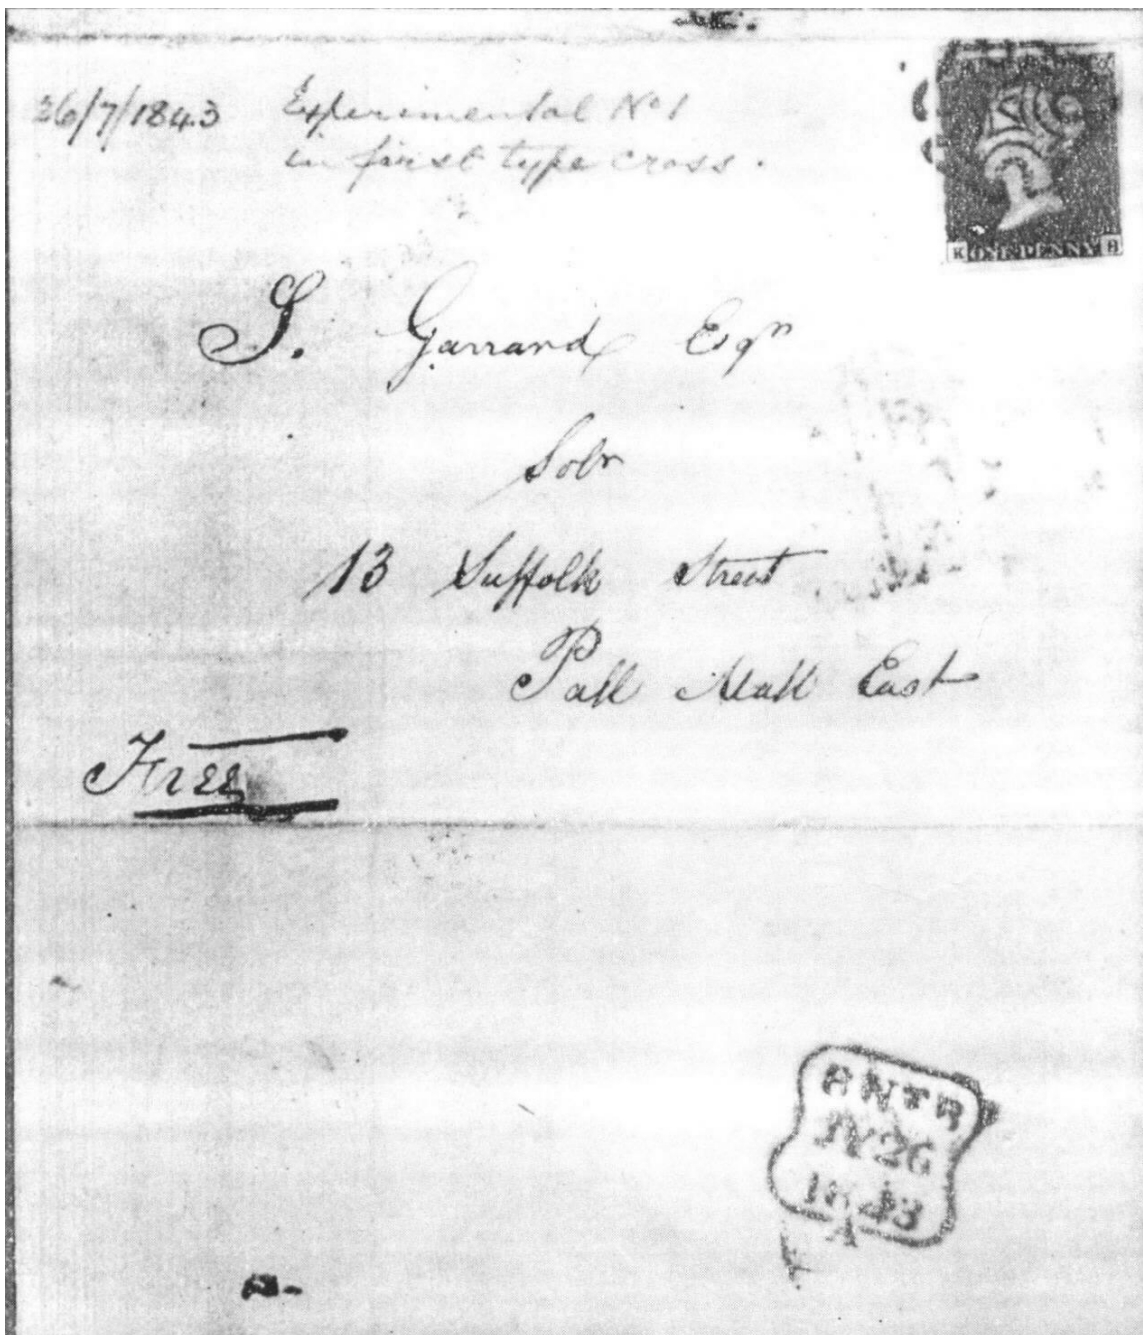 26/7/1843 Experimental No 1
in first type cross.
K ONE PENNY B
S. Garrand Esqr
Solr
13 Suffolk Street
Pall Mall East
Free
8NTR8
JY26
1843
A